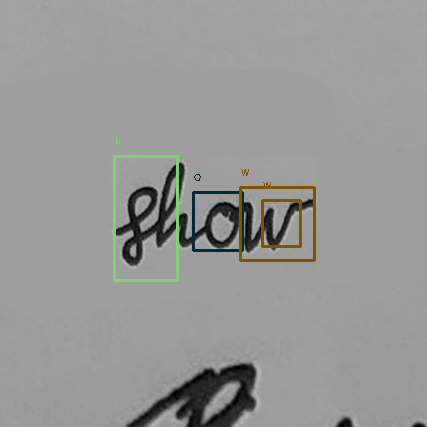 k
o w w
show